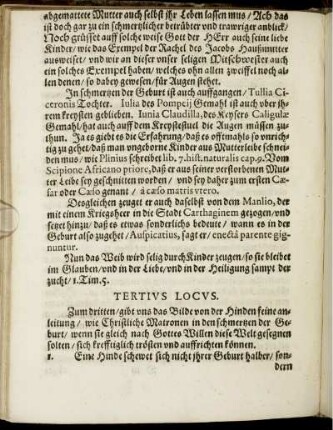 abgemattete Mutter auch selbst ihr Leben lassen mus / Ach das
ist doch gar zu ein schmertzlicher betrübter und trawriger anblick!
Noch grüsset auff solche weise Gott der HErr auch seine liebe
Kinder / wie das Exempel der Rachel des Jacobs Haußmutter
ausweiset / und wir an dieser unser seligen Mitschwester auch
ein solches Exempel haben / welches ohn allen zweiffel noch al-
len denen / so dabey gewesen / für Augen stehet.
In schmertzen der Geburt ist auch auffgangen / Tullia Ci-
ceronis Tochter. Iulia des Pompeij Gemahl ist auch uber ih-
rem kreysten geblieben. Iunia Claudilla des Keysers Caligulæ
Gemahl / hat auch auff dem Kreystestuel die Augen müssen zu-
thun. Ja es giebt es die Erfahrung / daß es offtmahls so unrich-
tig zu gehet / daß man ungeborne Kinder aus Mutterleibe schnei-
den mus / wie Plinius schreibet lib. 7. hist. naturalis cap. 9. Vom
Scipione Africano priore, daß er aus seiner verstorbenen Mut-
ter Leibe sey geschnitten worden / und sey daher zum ersten Cæ-
sar oder Cæso genant / à cæso matris utero.
Desgleichen zeuget er auch daselbst von dem Manlio, der
mit einem Kriegsheer in die Stadt Carthaginem gezogen / und
setzt hinzu / daß es etwas sonderlichs bedeute / wann es in der
Geburt also zugehet / Auspicatius, sagt er / enectâ parente gig-
nuntur.
Nun das Weib wird selig durch Kinder zeugen / so sie bleibet
im Glauben / und in der Liebe / und in der Heiligung sampt der
zucht / 1. Tim. 5.
TERTIVS LOCVS.
Zum dritten / gibt uns das Bilde von der Hinden feine an-
leitung / wie Christliche Matronen in den schmertzen der Ge-
burt / wenn sie gleich nach Gottes Willen diese Welt gesegnen
solten / sich kreffftiglich trösten und auffrichten können.
1. Eine Hinde schewet sich nicht ihrer Geburt halber / son-
dern